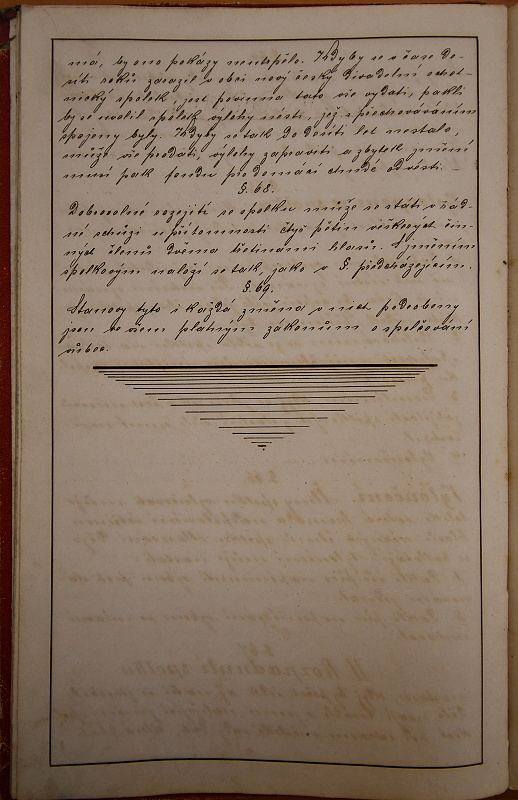 má, by ono pokázy neutrpělo. Kdyby se v čase de-
síti roků zarazil v obci nový český divadelní ochot-
nický spolek jest povinna tato vše vydati, pakli
by se uvolil spolek výlohy nésti, jež s přechováváním
spojeny byly. Kdyby se tak do desíti let nestalo,
může vše prodati, výlohy zapraviti a zbytek jmění
musí pak fondu pro domácí chudé odvésti. —
§. 68.
Dobrovolné rozejití se spolku může se státi v řád-
né schůzi u přítomnosti čtyř pětin veškerých čin-
ných členů dvěma třetinami hlasů. S jměním
spolkovým naloží se tak, jako v §. předcházejícím.
§. 69.
Stanovy tyto i každá změna v nich podrobeny
jsou ve všem platným zákonům o spolčování
vůbec.